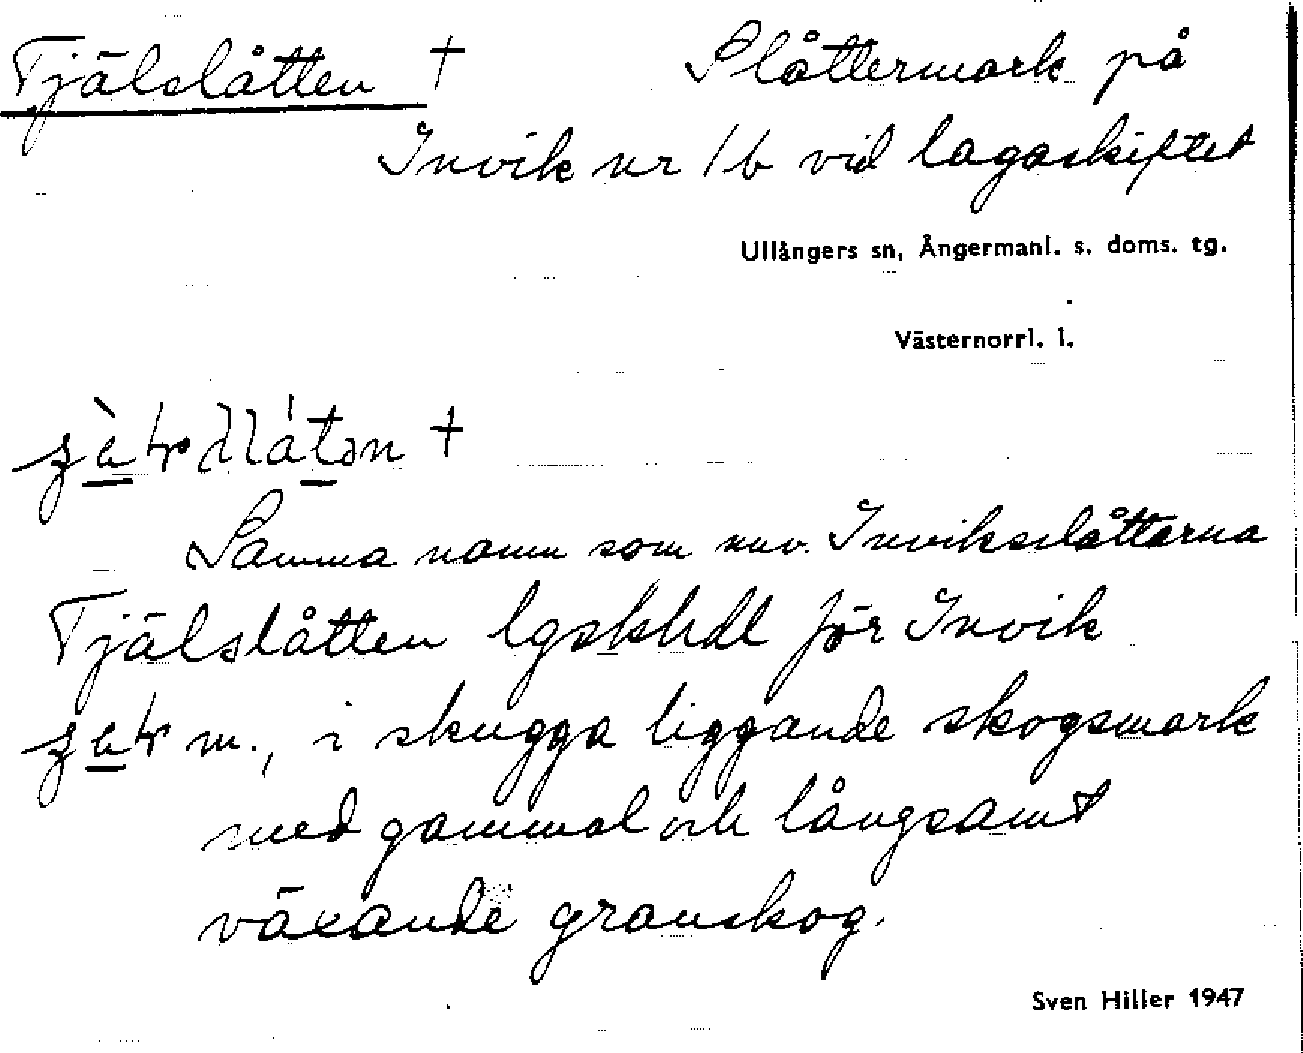 Tjälslåtten † Slåttermark på
Invik nr 1b vid lagaskiftet
Ullångers sn, Ångermanl. s. doms. tg.
Västernorrl. l.
†
Samma namn som nuv. Inviksslåttarna
Tjälslåtten lgskhdl för Invik
m., i skugga liggande skogsmark
med gammal och långsamt
växande granskog.
Sven Hiller 1947